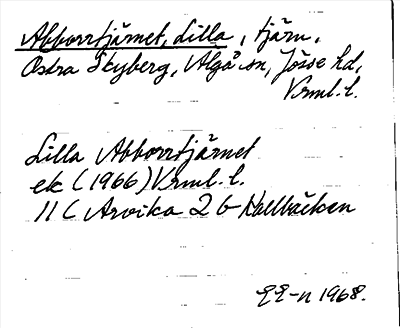 Abborrtjärnet, Lilla, tjärn,
Östra Skyberg, Älgå sn, Jösse hd,
Vrml. l.
Lilla Abborrtjärnet
ek (1966) Vrml. l.
11 C Arvika 2 b Hallbäcken
1968.